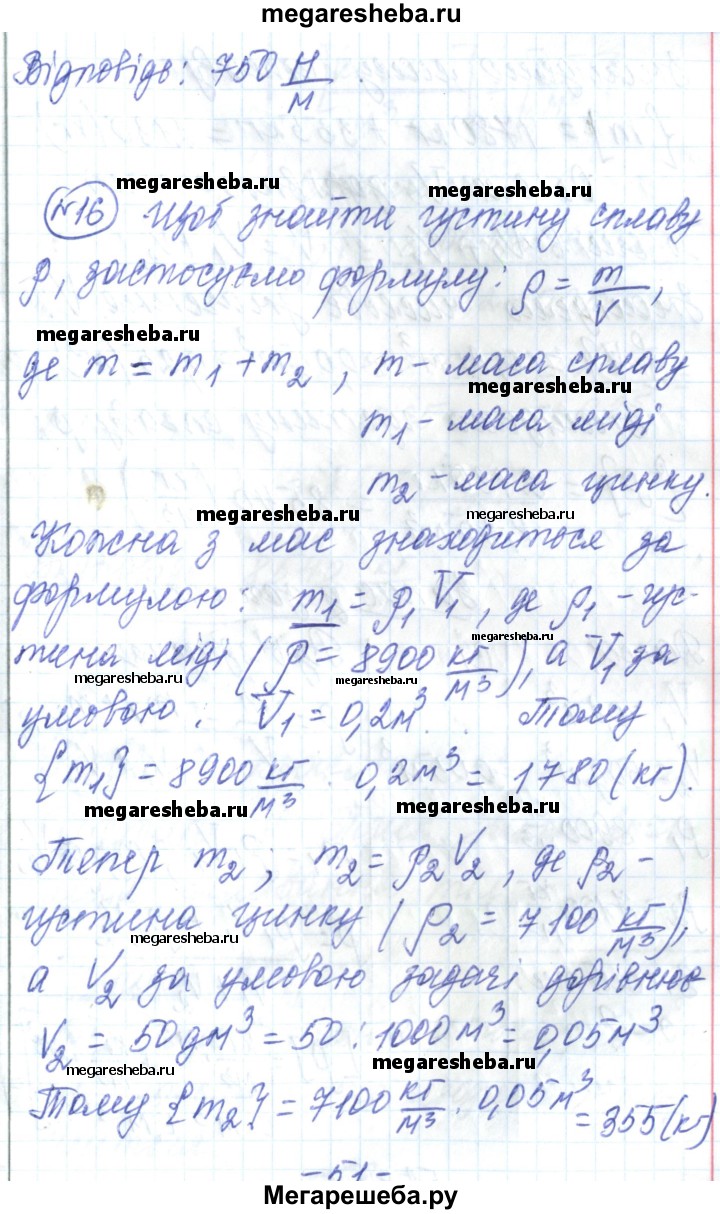 megaresheba.ru
Відповідь: 750 Н/м.
megaresheba.ru
megaresheba.ru
№16 Щоб знайти густину сплаву
ρ, застосуємо формулу: ρ = m/V,
megaresheba.ru
де m = m₁ + m₂, m - маса сплаву
megaresheba.ru
m₁ - маса міді
m₂ - маса цинку.
megaresheba.ru
megaresheba.ru
Кожна з мас знаходиться за
формулою: m₁ = ρ₁V₁, де ρ₁ - гус-
megaresheba.ru
тина міді (ρ = 8900 кг/м³), а V₁ за
megaresheba.ru
megaresheba.ru
умовою: V₁ = 0,2м³. Тому
{m₁} = 8900 кг/м³ · 0,2м³ = 1780 (кг).
megaresheba.ru
megaresheba.ru
Тепер m₂; m₂ = ρ₂V₂, де ρ₂ -
густина цинку (ρ₂ = 7100 кг/м³),
megaresheba.ru
а V₂ за умовою задачі дорівнює
V₂ = 50дм³ = 50 : 1000м³ = 0,05м³
megaresheba.ru
megaresheba.ru
Тому {m₂} = 7100 кг/м³ · 0,05м³ = 355 (кг)
-51-
Мегарешеба.ру